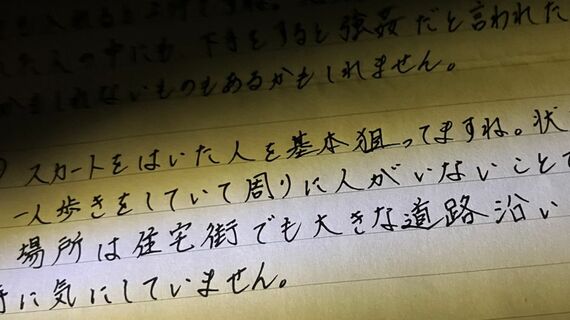 を入れると
した人の中にも、下手をすると強姦だと言われた
かもしれないものもあるかもしれません。
スカートをはいた人を基本狙ってますね。状
一人歩きをしていて周りに人がいないことで
場所は住宅街でも大きな道路沿い
特に気にしていません。